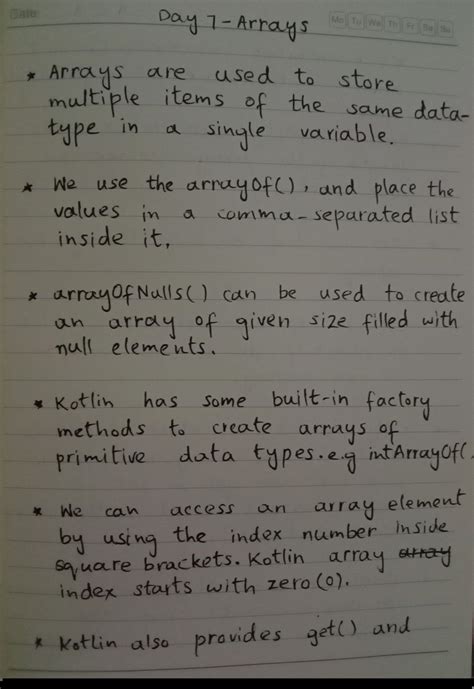 Date
Day 7 - Arrays
Mo Tu We Th Fr Sa Su
* Arrays are used to store
multiple items of the same data-
type in a single variable.
* We use the arrayOf(), and place the
values in a comma-separated list
inside it,
* arrayOfNulls() can be used to create
an array of given size filled with
null elements.
* Kotlin has some built-in factory
methods to create arrays of
primitive data types. e.g intArrayOf(
* We can access an array element
by using the index number inside
square brackets. Kotlin array array
index starts with zero (0).
* Kotlin also provides get() and